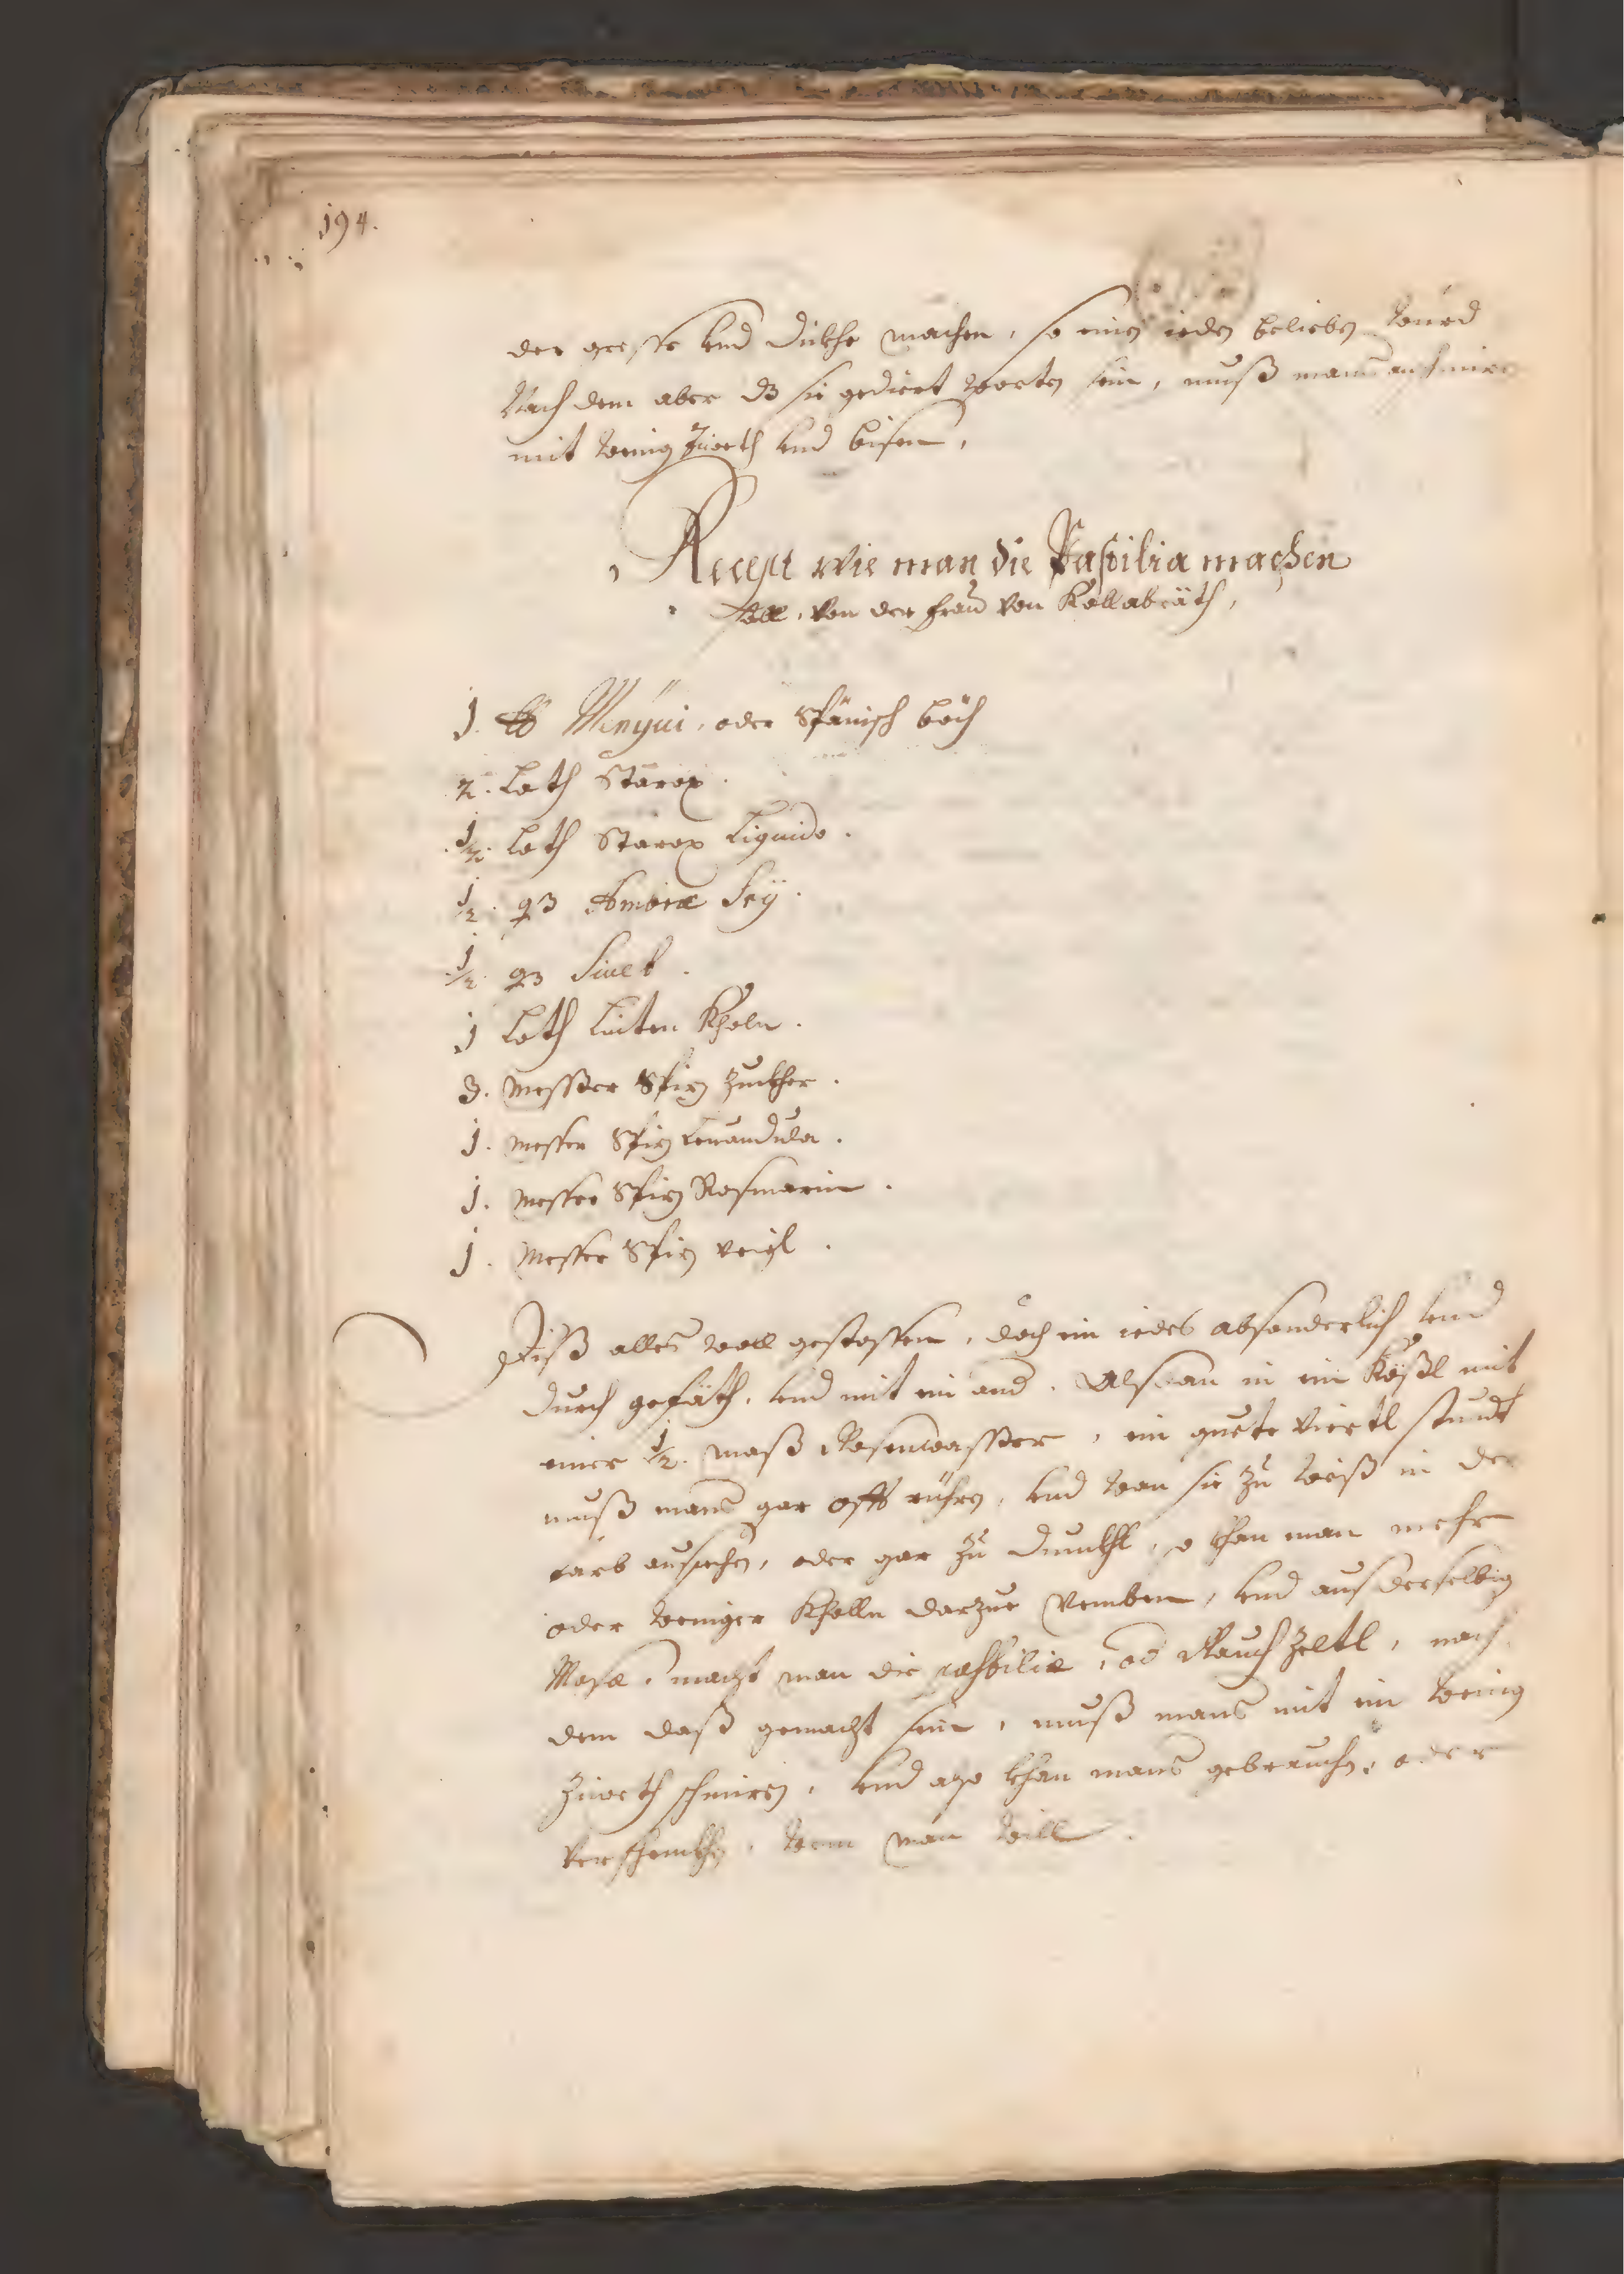 194.
der gresse vnd dickhe machen, so einen ieden belieben wurd
Nach dem aber dz sie gediert worten sein, muß mans anschmiren
mit wenig Ziveth vnd bisem,
Recept wie man die Pastilia machen
soll, von der frau von Kollabräth,
1. lb Menzui, oder Spänisch böch
2. Loth Storax.
1/2. Loth Storax Liquido.
1/2. q3 Ambræ
1/2. q3
1 Loth Linten Kholn.
3. Messer Spiz Zuckher.
1. Messer Spiz Lauandula.
1. Messer Spiz Rosmarin.
1. Messer Spiz veigl.
Diß alles woll gestossen, doch ein iedes absonderlich vnd
durch gesäth, vnd mit ein and. Alsdan in ein Kößl mit
einer 1/2. maß Rosenwasser, ein guete Viertl stundt
muß mans gar offt rühren, vnd wan sie zu weiß in der
farb aussechen, oder gar zu dunckhl, so khan man mehr
oder weniger Kholln darzue nemben, vnd aus derselbig
Masæ, macht man die pastiliæ, od Rauch Zeltl, nach
dem daß gemacht sein, muß mans mit ein wenig
Ziveth schmiren, vnd also khan mans gebrauchen, oder
verschenckhen, wem man will.